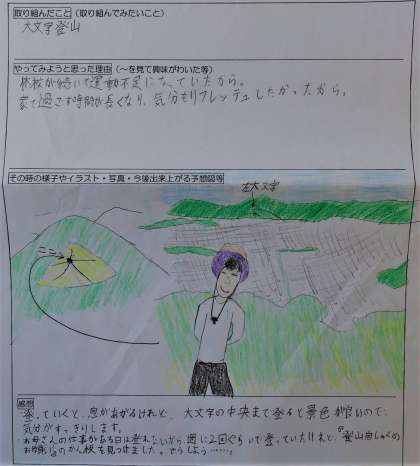 取り組んだこと(取り組んでみたいこと)
大文字登山
やってみようと思った理由(~を見て興味がわいた等)
休校が続いて運動不足になっていたから。
家で過ごす時間が長くなり、気分もリフレッシュしたかったから。
その時の様子やイラスト・写真・今後出来上がる予想図等
左大文字
感想
登っていくと、息があがるけれど、大文字の中央まで登ると景色が良いので、
気分がすっきりします。
お母さんの仕事がある日は登れないから週に2回ぐらいで登っていたけれど、"登山自しゅくの
お願い"のかん板を見つけました。どうしよう……。